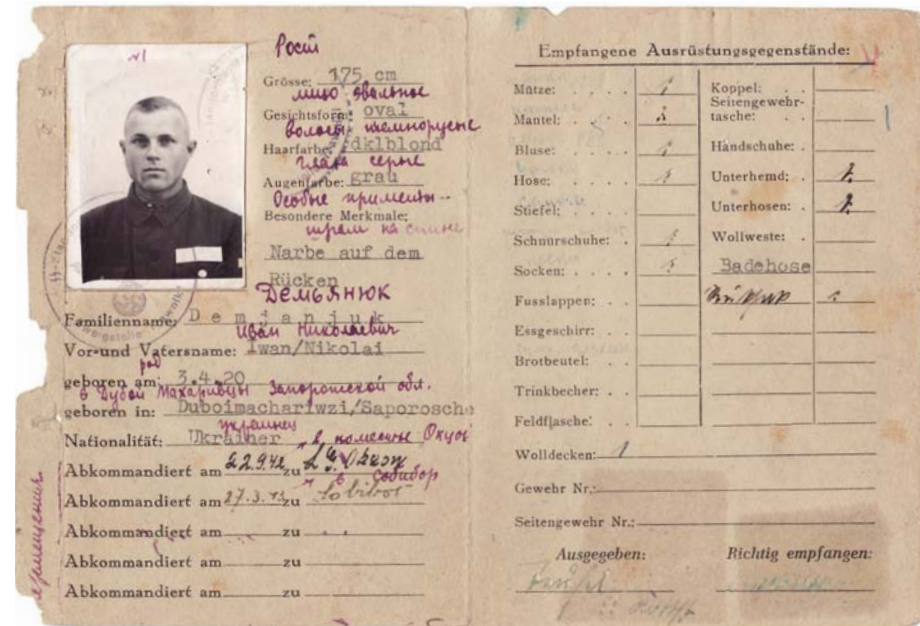 №1
Рост
Grösse: 175 cm
лицо овальное
Gesichtsform: oval
волосы темнорусые
Haarfarbe: dklblond
глаза серые
Augenfarbe: grau
Особые приметы -
Besondere Merkmale:
шрам на спине
Narbe auf dem
Rücken
Демьянюк
Familienname: Demjanjuk
Иван Николаевич
Vor-und Vatersname: Iwan/Nikolai
род
geboren am: 3.4.20
в Дубой Махаривцы Запорожской обл.
geboren in: Duboimachariwzi/Saporosche
украинец
Nationalität: Ukrainer
в поместье Окцов
Abkommandiert am 22.9.42 zu L.G. Okzow
в Собибор
Abkommandiert am 27.3.43 zu Sobibor
Abkommandiert am zu
Abkommandiert am zu
Abkommandiert am zu
Empfangene Ausrüstungsgegenstände:
Mütze: 1
Mantel: 1
Bluse: 1
Hose: 1
Stiefel:
Schnurschuhe: 1
Socken: 1
Fusslappen:
Essgeschirr:
Brotbeutel:
Trinkbecher:
Feldflasche:
Koppel:
Seitengewehr-
tasche:
Handschuhe:
Unterhemd:
Unterhosen:
Wollweste:
Badehose
Wolldecken: 1
Gewehr Nr.:
Seitengewehr Nr.:
Ausgegeben: Richtig empfangen: